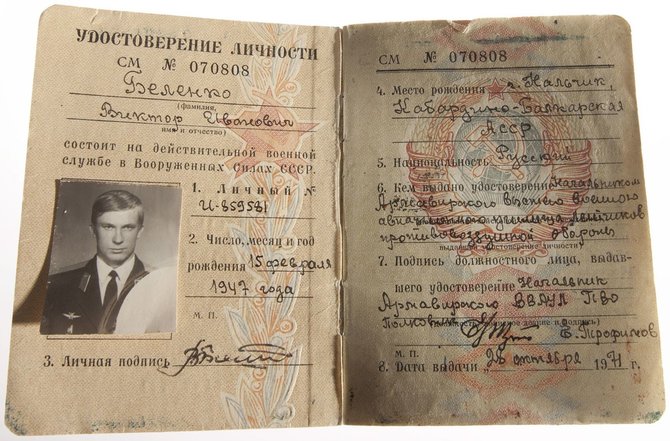 УДОСТОВЕРЕНИЕ ЛИЧНОСТИ
СМ № 070808
Беленко
(фамилия,
Виктор Иванович
имя и отчество)
состоит на действительной военной
службе в Вооруженных Силах СССР.
1. Личный №
И-859581
2. Число, месяц и год
рождения 15 февраля
1947 года
М. П.
3. Личная подпись
СМ № 070808
4. Место рождения г. Нальчик,
Кабардино-Балкарская
АССР
5. Национальность Русский
6. Кем выдано удостоверение Начальником
Армавирского высшего военного
авиационного училища летчиков
противовоздушной обороны
выдавшей удостоверение личности)
7. Подпись должностного лица, выдав-
шего удостоверение Начальник
Армавирского ВВАУЛ ПВО
полковник Б. Трофимов
М. П.
8. Дата выдачи 26 октября 1971 г.